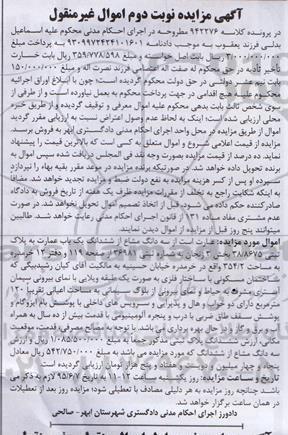 آگهی مزایده نوبت دوم اموال غیرمنقول
در پرونده کلاسه ۹۴۲۲۷۶ مطروحه در اجرای احکام مدنی محکوم علیه اسماعیل
بدلی فرزند یعقوب به موجب دادنامه ۹۳۰۹۹۷۲۴۲۴۱۰۱۶۰۱ به پرداخت مبلغ
ریال بابت اصل خواسته و مبلغ ۳۵۹/۷۷۸/۵۹۸ ریال بابت خسارت
تأخیر تادیه در حق محکوم له صفت اله اعتصامی فرزند نصرت اله و مبلغ ۱۵۰/۰۰۰/۰۰۰
ریال بابت نیم عشر دولتی در حق دولت محکوم گردیده است؛ چون با ابلاغ اوراق اجرائیه
محکوم علیه هیچ اقدامی در جهت پرداخت محکوم به بعمل نیاورده است و از طرفی از
سوی شخص ثالث بابت بدهی محکوم علیه اموال معرفی و توقیف گردیده و از طریق خبره
محلی ارزیابی شده است؛ اینک به لحاظ عدم وصول اعتراض نسبت به ارزیابی مقرر گردید
اموال از طریق مزایده در محل واحد اجرای احکام مدنی دادگستری ابهر به فروش برسد.
مزایده از قیمت اعلامی شروع و اموال متعلق به کسی است که بالاترین قیمت را پیشنهاد
نماید. ده درصد از قیمت مزایده بصورت وجه نقد فی المجلس دریافت شده سپس اموال به
برنده تحویل داده خواهد شد. در صورتیکه برنده مزایده در موعد مقرر بقیه بهاء را نپردازد
سپرده او پس از کسر هزینه مزایده به نفع دولت ضبط و مزایده تجدید خواهد شد. مضافا
به اینکه شکایت راجع به تخلف از مقررات مزایده ظرف یک هفته از تاریخ فروش به دادگاه
صادرکننده حکم داده می‌شود. قبل از اتخاذ تصمیم اموال تحویل نخواهد شد. در صورت
عدم مشتری مفاد ماده ۱۳۱ از قانون اجرای احکام مدنی رعایت خواهد شد. طالبین
میتوانند پنج روز قبل از مزایده از اموال دیدن نمایند.
اموال مورد مزایده: عبارت است از سه دانگ مشاع از ششدانگ یک باب عمارت به پلاک
ثبتی ۳۸۸۶۷۵ بخش ۳ زنجان سند ثبتی ۳۶۹۱۶۱ صفحه ۱۱۹ و دفتر ۱۲ خرمدره
به مساحت ۳۵۴/۲ واقع در خرمدره خیابان حسینیه به مالکیت آقای کیان رشیدبیگی که
ساختمان مسکونی با ساختار فلزی به صورت یک طبقه ویلایی با نمای بیرونی سیمان
حیاط و نمای بیرونی از بلوک سیمانی به مساحت اعیانی تقریبی ۱۲۰
مترمربع دارای دو خواب و هال و پذیرایی و سرویس های داخلی با پوشش بام ایزوگام و
پوشش سقف طاق ضربی با درب و پنجره آلومینیومی با قدمت بیش از ده سال به همراه
آب و برق و گاز و در حال بهره برداری می باشد. با توجه به مصالح مصرفی، قدمت و موقعیت
مکانی، ارزش ششدانگ پلاک ثبتی مذکور جمعا به مبلغ ۱/۰۸۵/۵۰۰/۰۰۰ ریال و ارزش
سه دانگ مشاع از ششدانگ که مورد مزایده می باشد به مبلغ ۵۴۲/۷۵۰/۰۰۰ ریال معادل
پنجاه و چهار میلیون و دویست و هفتاد و پنج هزار تومان ارزیابی گردیده است.
تاریخ و ساعت مزایده: روز یکشنبه ساعت ۱۲-۱۱ به تاریخ ۹۵/۶/۷ به ذکر می
باشد چنانچه روز مزایده به هر دلیلی مصادف با تعطیلی شود؛ مزایده روز بعد از تعطیلات
در همان ساعت برگزار خواهد شد.
دادورز اجرای احکام مدنی دادگستری شهرستان ابهر- صالحی